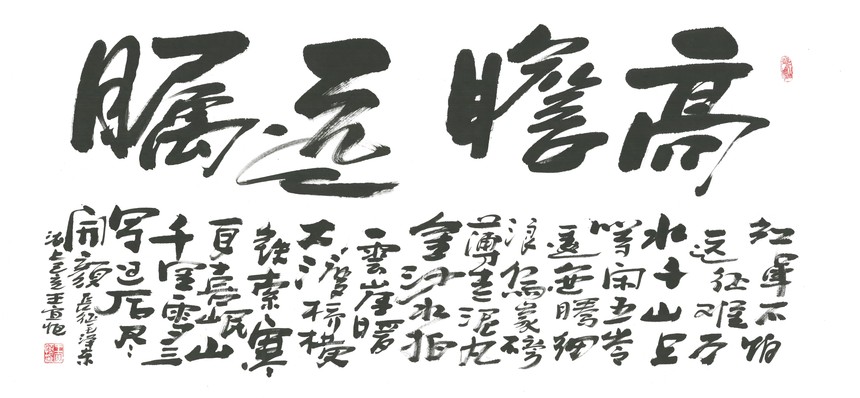 高瞻远瞩
红軍不怕
远征难万
水千山只
等闲五岭
逶迤腾细
浪乌蒙磅
礴走泥丸
金沙水拍
雲崖暖
大渡桥横
铁索寒
更喜岷山
千里雪三
军过后尽
開颜 長征毛泽东